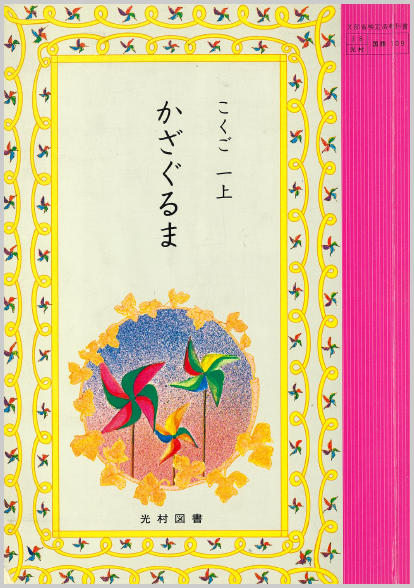 こくご 一上
かざぐるま
光村図書
文部省検定済教科書
光村
国語 109